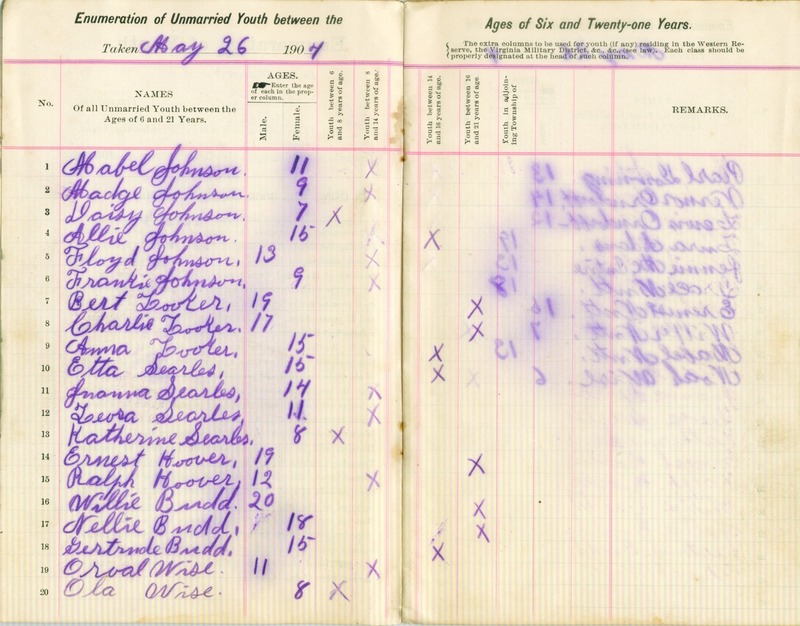 Enumeration of Unmarried Youth between the Ages of Six and Twenty-one Years.
Taken May 26 1904
The extra columns to be used for youth (if any) residing in the Western Re-
serve, the Virginia Military District, &c., &c., (see law). Each class should be
properly designated at the head of such column.
No.
NAMES
Of all Unmarried Youth between the
Ages of 6 and 21 Years.
AGES.
Enter the age
of each in the prop-
er column.
Male.
Female.
Youth between 6
and 8 years of age.
Youth between 8
and 14 years of age.
Youth between 14
and 16 years of age.
Youth between 16
and 21 years of age.
Youth in adjoin-
ing Township of
REMARKS.
1 Mabel Johnson. 11 X
2 Madge Johnson. 9 X
3 Daisy Johnson. 7 X
4 Allie Johnson. 15 X
5 Floyd Johnson, 13 X
6 Frankie Johnson, 9 X
7 Bert Looker, 19 X
8 Charlie Looker. 17 X
9 Anna Looker, 15 X
10 Etta Searles, 15 X
11 Juanna Searles, 14 X
12 Leora Searles, 11. X
13 Katherine Searles, 8 X
14 Ernest Hoover, 19 X
15 Ralph Hoover, 12 X
16 Willie Budd. 20 X
17 Nellie Budd, 18 X
18 Gertrude Budd, 15 X
19 Orval Wise. 11 X
20 Ola Wise. 8 X